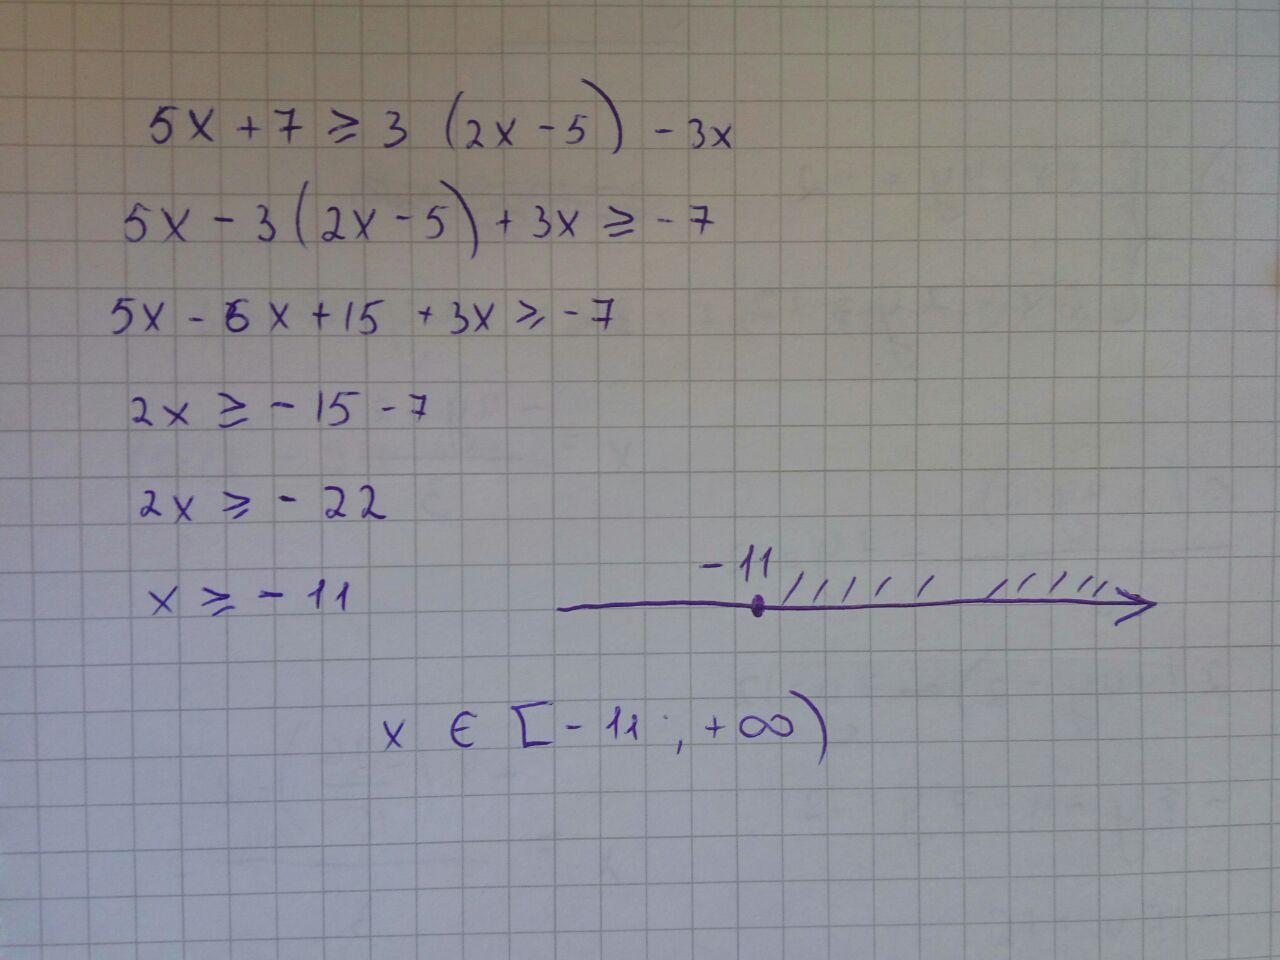 5x + 7 ⩾ 3 (2x - 5) - 3x
5x - 3(2x - 5) + 3x ⩾ - 7
5x - 6x + 15 + 3x ⩾ - 7
2x ⩾ - 15 - 7
2x ⩾ - 22
- 11
x ⩾ - 11
x ∈ [- 11 ; + ∞)